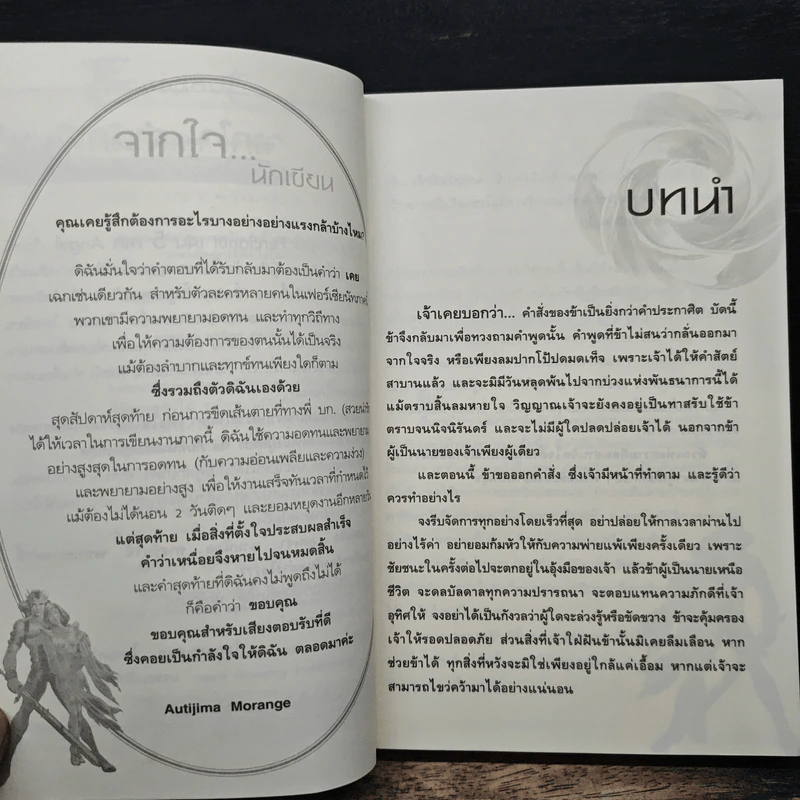 จากใจ...
นักเขียน
คุณเคยรู้สึกต้องการอะไรบางอย่างอย่างแรงกล้าบ้างไหม
ดิฉันมั่นใจว่าคำตอบที่ได้รับกลับมาต้องเป็นคำว่า เคย
เฉกเช่นเดียวกัน สำหรับตัวละครหลายคนในเฟอร์เซียนัท
พวกเขามีความพยายามอดทน และทำทุกวิถีทาง
เพื่อให้ความต้องการของตนนั้นได้เป็นจริง
แม้ต้องลำบากและทุกข์ทนเพียงใดก็ตาม
ซึ่งรวมถึงตัวดิฉันเองด้วย
สุดสัปดาห์สุดท้าย ก่อนการขีดเส้นตายที่ทางพี่ บก.
ได้ให้เวลาในการเขียนงานภาคนี้ ดิฉันใช้ความอดทนและพยายาม
อย่างสูงสุดในการอดทน (กับความอ่อนเพลียและความง่วง)
และพยายามอย่างสูง เพื่อให้งานเสร็จทันเวลาที่กำหนดไว้
แม้ต้องไม่ได้นอน 2 วันติดๆ และยอมหยุดงานอีกหลาย
แต่สุดท้าย เมื่อสิ่งที่ตั้งใจประสบผลสำเร็จ
คำว่าเหนื่อยจึงหายไปจนหมดสิ้น
และคำสุดท้ายที่ดิฉันคงไม่พูดถึงไม่ได้
ก็คือคำว่า ขอบคุณ
ขอบคุณสำหรับเสียงตอบรับที่ดี
ซึ่งคอยเป็นกำลังใจให้ดิฉัน ตลอดมาค่ะ
Autijima Morange
บทนำ
เจ้าเคยบอกว่า... คำสั่งของข้าเป็นยิ่งกว่าคำประกาศิต บัดนี้
ข้าจึงกลับมาเพื่อทวงถามคำพูดนั้น คำพูดที่ข้าไม่สนว่ากลั่นออกมา
จากใจจริง หรือเพียงลมปากโป้ปดมดเท็จ เพราะเจ้าได้ให้คำสัตย์
สาบานแล้ว และจะมิมีวันหลุดพ้นไปจากบ่วงแห่งพันธนาการนี้ได้
แม้ตราบสิ้นลมหายใจ วิญญาณเจ้าจะยังคงอยู่เป็นทาสรับใช้ข้า
ตราบจนนิจนิรันดร์ และจะไม่มีผู้ใดปลดปล่อยเจ้าได้ นอกจากข้า
ผู้เป็นนายของเจ้าเพียงผู้เดียว
และตอนนี้ ข้าขอออกคำสั่ง ซึ่งเจ้ามีหน้าที่ทำตาม และรู้ดีว่า
ควรทำอย่างไร
จงรีบจัดการทุกอย่างโดยเร็วที่สุด อย่าปล่อยให้กาลเวลาผ่านไป
อย่างไร้ค่า อย่ายอมก้มหัวให้กับความพ่ายแพ้เพียงครั้งเดียว เพราะ
ชัยชนะในครั้งต่อไปจะตกอยู่ในอุ้งมือของเจ้า แล้วข้าผู้เป็นนายเหนือ
ชีวิต จะดลบัลดาลทุกความปรารถนา จะตอบแทนความภักดีที่เจ้า
อุทิศให้ จงอย่าได้เป็นกังวลว่าผู้ใดจะล่วงรู้หรือขัดขวาง ข้าจะคุ้มครอง
เจ้าให้รอดปลอดภัย ส่วนสิ่งที่เจ้าใฝ่ฝันข้านั้นมิเคยลืมเลือน หาก
ช่วยข้าได้ ทุกสิ่งที่หวังจะมิใช่เพียงอยู่ใกล้แค่เอื้อม หากแต่เจ้าจะ
สามารถไขว่คว้ามาได้อย่างแน่นอน